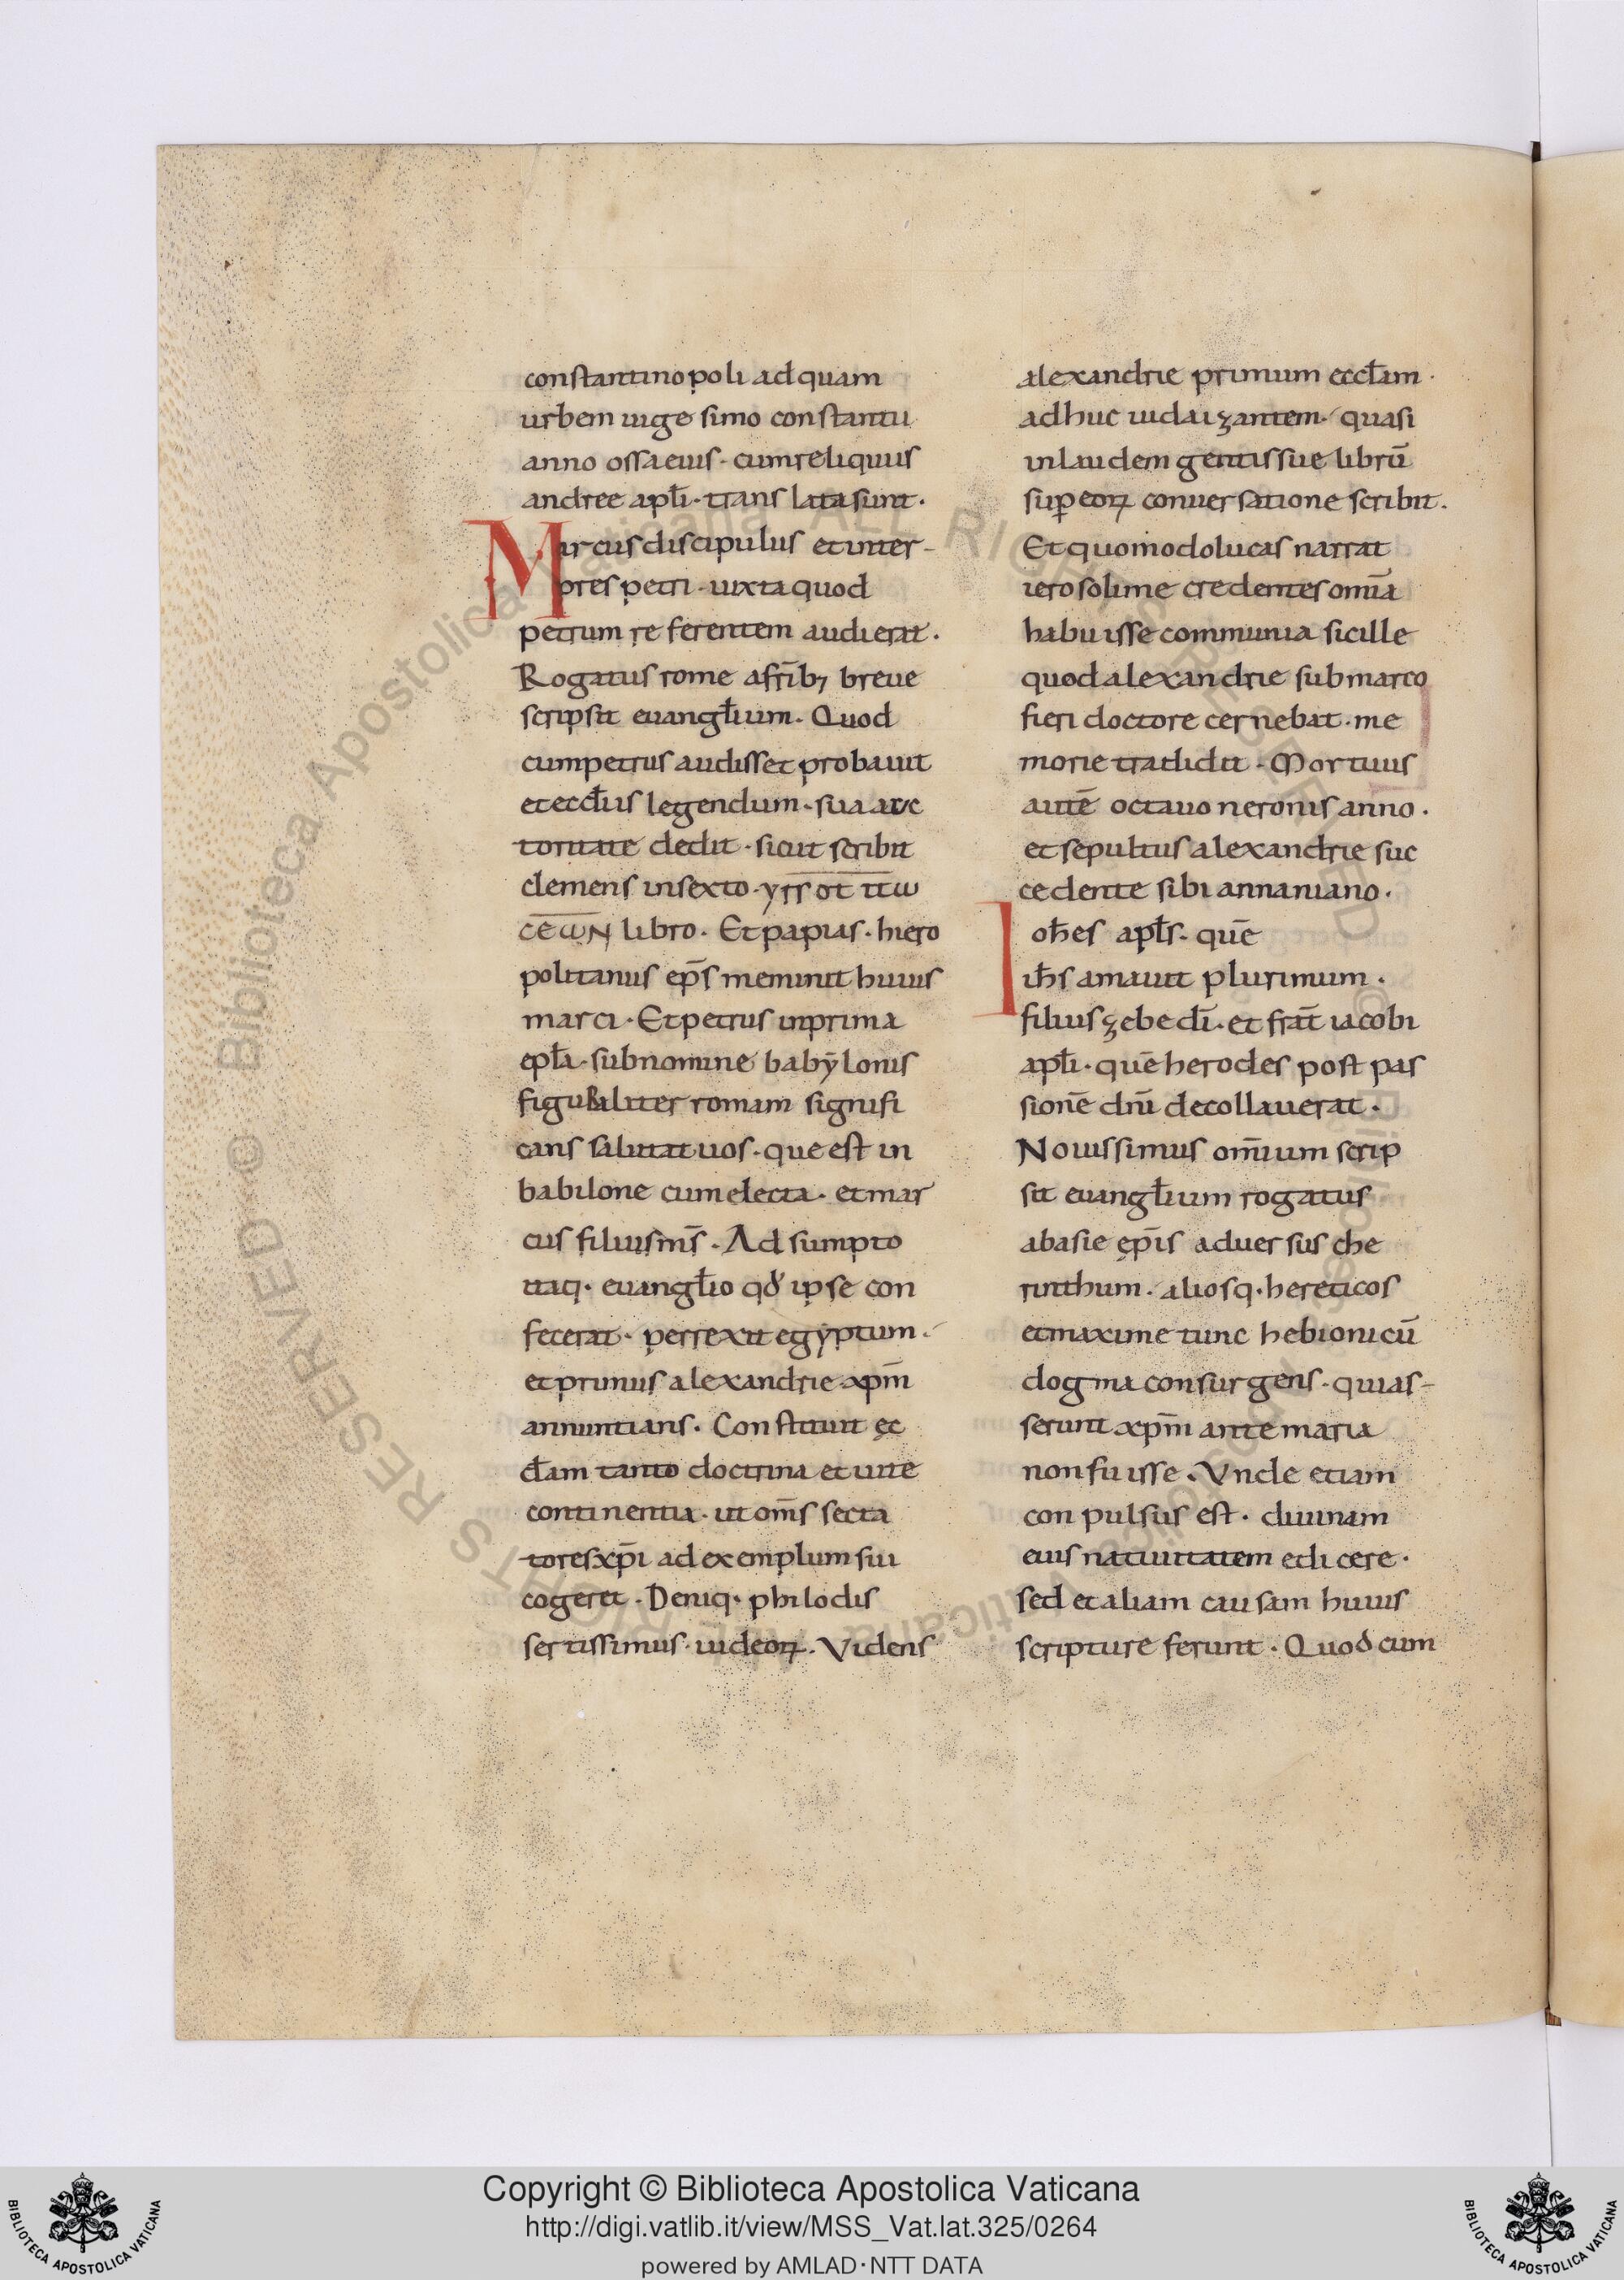 constantinopoli ad quam
urbem uigesimo constantii
anno ossa eius · cum reliquiis
andree apłi · translata sunt ·
Marcus discipulus et inter-
pres petri · iuxta quod
petrum referentem audierat ·
Rogatus rome afrīb; breue
scripsit euangłium · Quod
cum petrus audisset probauit
et eccłiis legendum · sua auc
toritate dedit · sicut scribit
clemens in sexto ·
libro · Et papias · hiero
politanus ep̄s meminit huius
marci · Et petrus in prima
epła · sub nomine babẏlonis
figuraliter romam signifi
cans salutat uos · que est in
babilone cum electa · et mar
cus filius m̄s · Adsumpto
itaq · euangłio qđ ipse con
fecerat · perrexit egẏptum ·
et primus alexandrie xp̄m
annuntians · Constituit ęc
cłam tanto doctrina et uite
continentia · ut om̄s secta
tores xp̄i ad exemplum sui
cogeret · Deniq · philo dis
sertissimus · iudeoꝝ · Videns
alexandrie primum eccłam ·
adhuc iudaizantem · quasi
in laudem gentis sue librū
sup̄ eoꝝ conuersatione scribit ·
Et quomodo lucas narrat
ierosolime credentes om̄ia
habuisse communia sic ille
quod alexandrie sub marco
fieri doctore cernebat · me
morie tradidit · Mortuus
autē octauo neronis anno ·
et sepultus alexandrie suc
cedente sibi annaniano ·
Ioħes apłs · quē
iħs amauit plurimum ·
filius zebedī · et frat̄ iacobi
apłi · quē herodes post pas
sionē dn̄i decollauerat ·
Nouissimus om̄ium scrip
sit euangłium rogatus
ab asie ep̄is aduersus che
rinthum · aliosq · hereticos
et maxime tunc hebionicū
dogma consurgens · qui as-
serunt xp̄m ante maria
non fuisse · Vnde etiam
conpulsus est · diuinam
eius natiuitatem edicere ·
sed et aliam causam huius
scripture ferunt · Quod cum
Copyright © Biblioteca Apostolica Vaticana
http://digi.vatlib.it/view/MSS_Vat.lat.325/0264
powered by AMLAD·NTT DATA
BIBLIOTECA APOSTOLICA VATICANA
BIBLIOTECA APOSTOLICA VATICANA